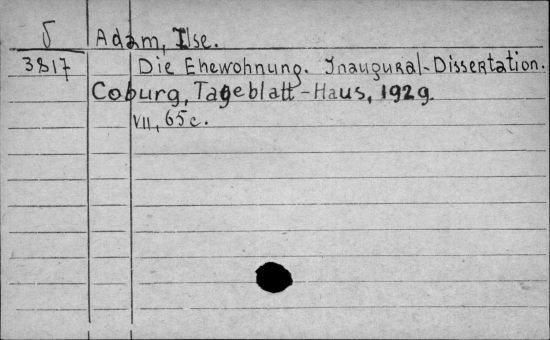 5 Adam, Ilse.
3817 Die Ehewohnung. Inaugural-Dissertation.
Coburg, Tageblatt-Haus, 1929.
VII, 65 c.